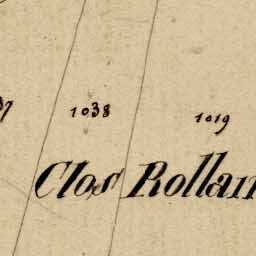 1038
1019
Clos Rollan